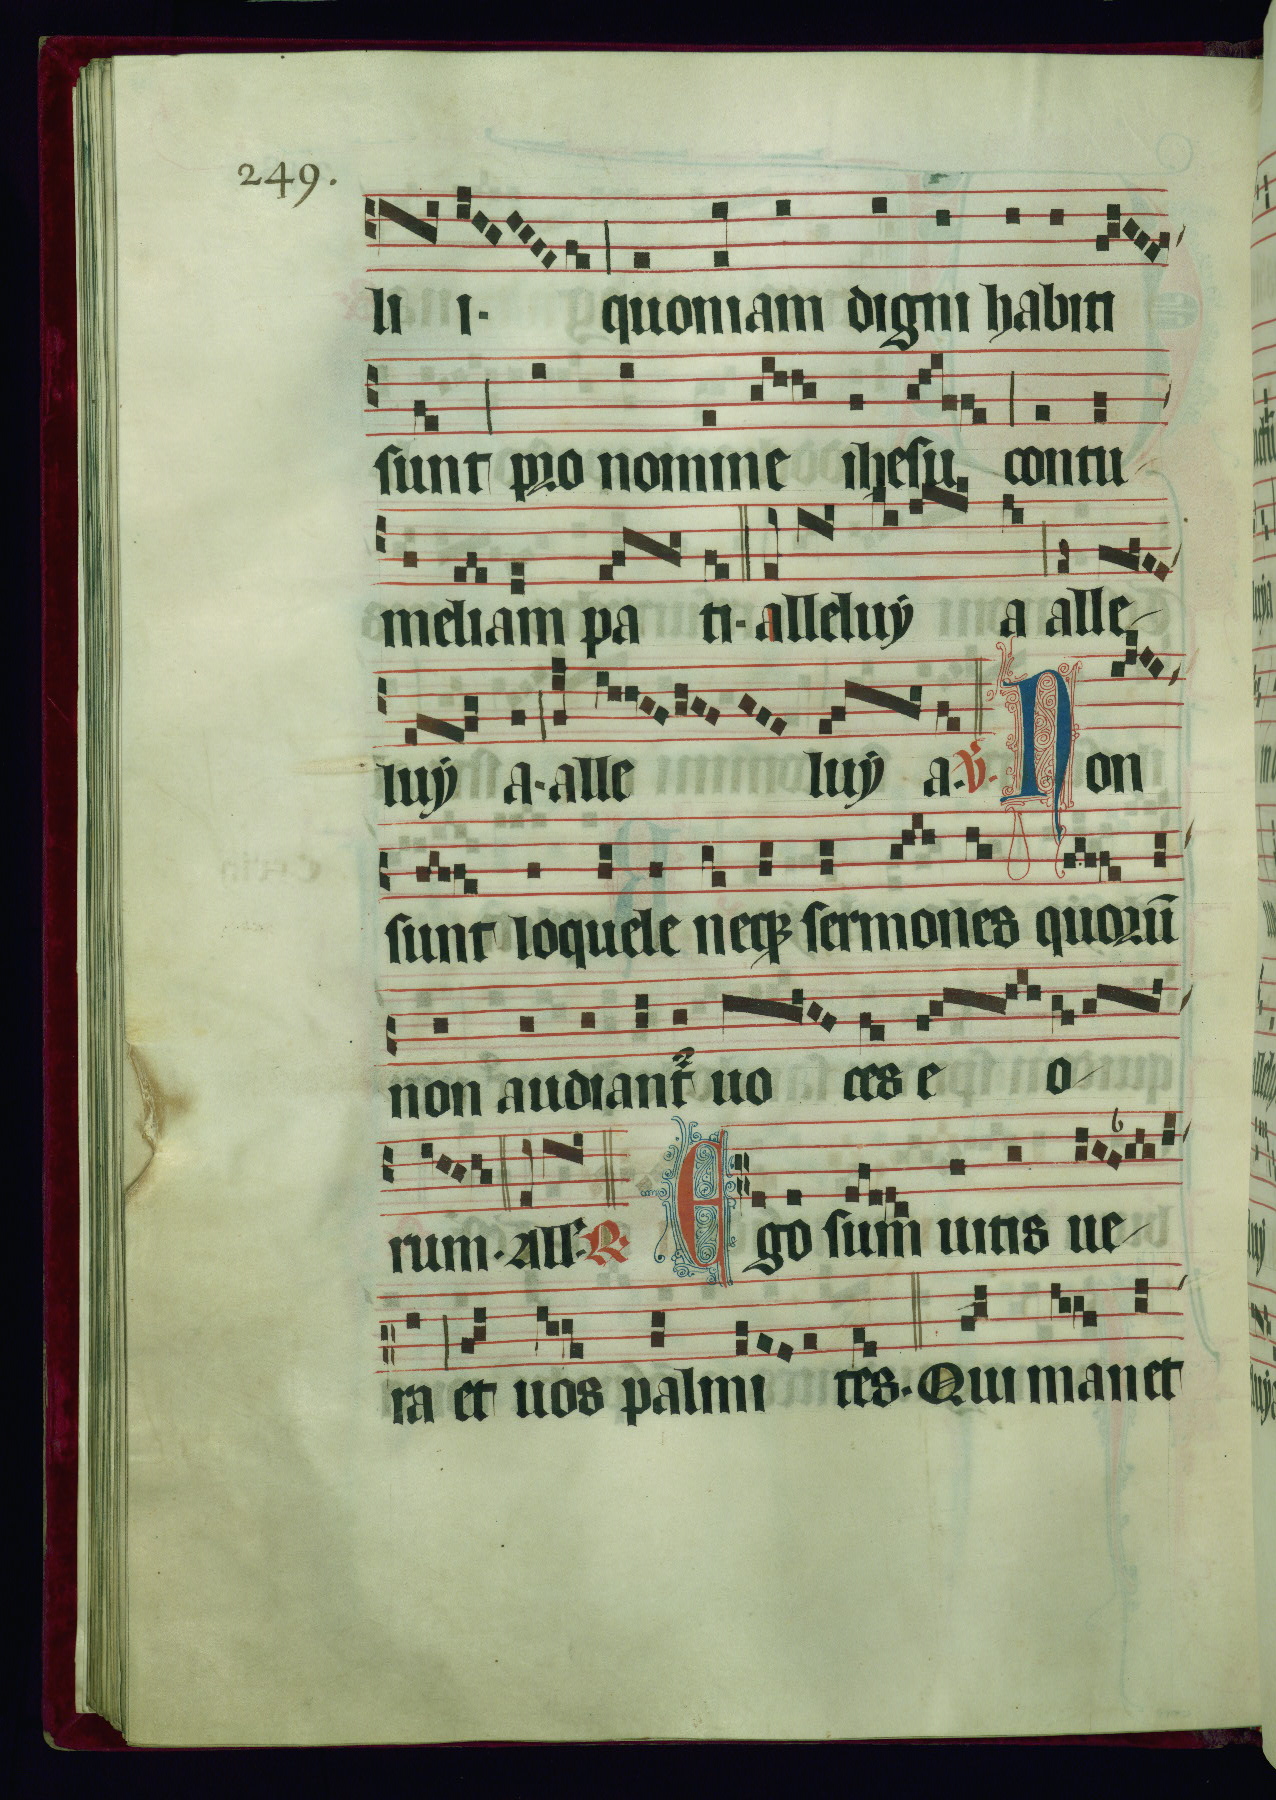 249.
li i. quoniam digni habiti
sunt pro nomine ihesu contu
meliam pa ti. alleluÿ a alle
luÿ a. alle luÿ a. V. Non
sunt loquele neqꝫ sermones quorū
non audiant᷑ uo ces e o
rum. all'. R. Ego sum uitis ue
ra et uos palmi tes. Qui manet